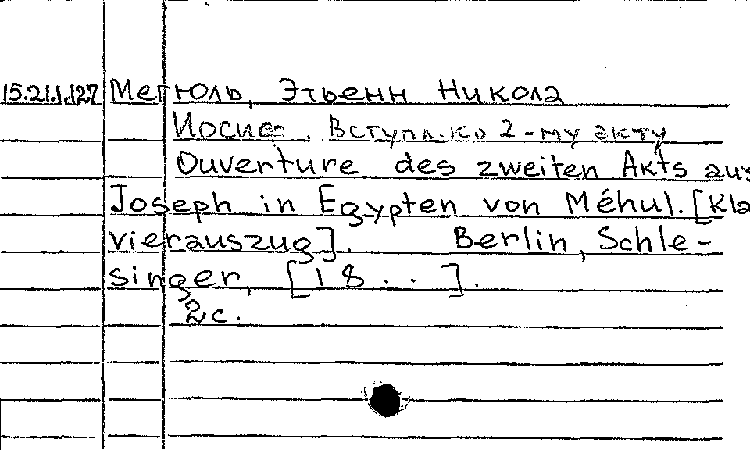 15.21.1.127 Мегюль, Этьенн Никола
Иосиф. Вступл. ко 2-му акту
Ouverture des zweiten Akts aus
Joseph in Egypten von Méhul. [Kla
vierauszug]. Berlin, Schle-
singer, [18 . . ].
2с.